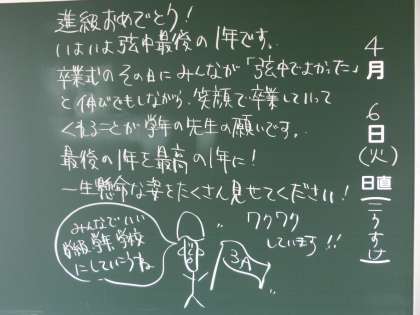 進級おめでとう!
いよいよ弦中最後の1年です。
卒業式のその日にみんなが「弦中でよかった」
と伸びでもしながら、笑顔で卒業していって
くれることが学年の先生の願いです。
最後の1年を最高の1年に!
一生懸命な姿をたくさん見せてください!
ワクワク
しています!!
みんなでいい
学級 学年 学校
にしていこうね
3A
4月6日(火)
日直
こうすけ